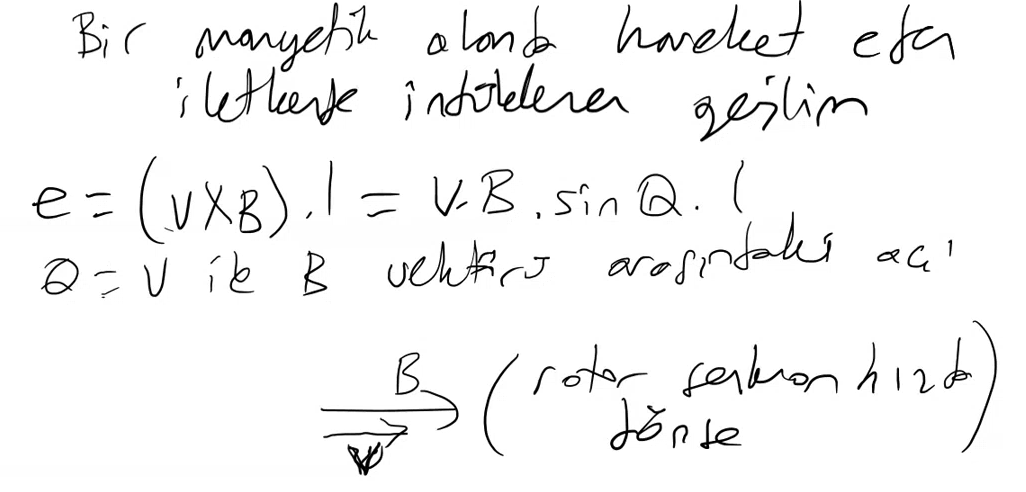 Bir manyetik alanda hareket eden
iletkende indüklenen gerilim
e = (V X B) . l = V. B . sin Q . l
Q = V ile B vektörü arasındaki açı
B (rotor senkron hızda
V dönse)